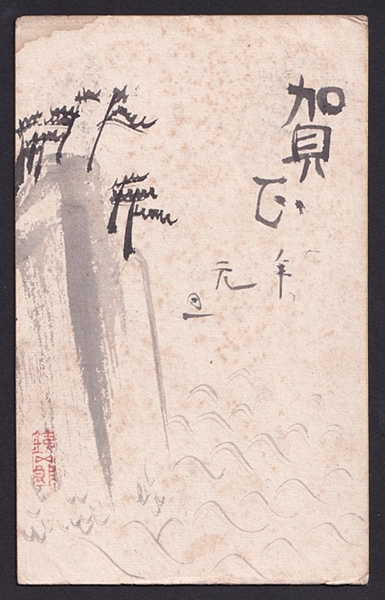 賀正
年
元
旦